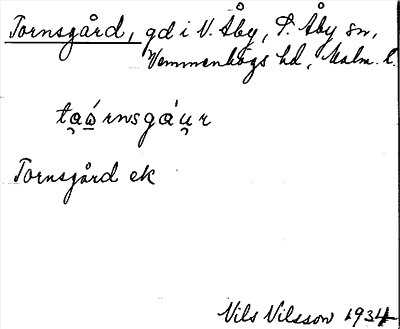 Tornsgård, gd i V. Åby, S. Åby sn,
Vemmenhögs hd, Malm. l.
ta̯ώ̲rnsgáu̯r
Tornsgård ek
Nils Nilsson 1934